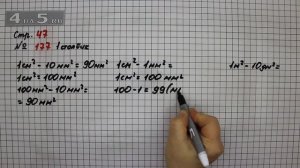 4DA5.RU
Стр. 47
№ 177 1 столбик
1 см² - 10 мм² = 90 мм²
1 см² = 100 мм²
100 мм² - 10 мм² =
= 90 мм²
1 см² - 1 мм² =
1 см² = 100 мм²
100 - 1 = 99 (м
1 м² - 10 дм² =